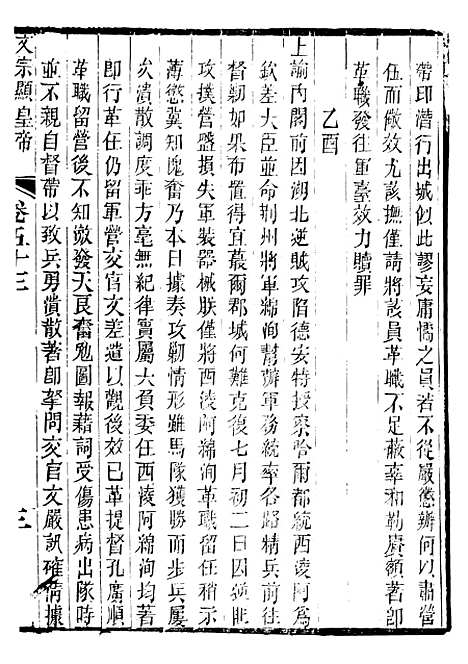 帶印潛行出城似此謬妄庸懦之員若不從嚴懲辦何以肅營
伍而儆效尤該撫僅請將該員革職不足蔽辜和勒賡額著即
革職發往軍臺效力贖罪
乙酉
上諭內閣前因湖北逆賊攻陷德安特授察哈爾都統西淩阿為
欽差大臣並命荊州將軍綿洵幫辦軍務統率各路精兵前往
督剿如果布置得宜蕞爾郡城何難克復七月初二日因逆匪
攻撲營盤損失軍裝器械朕僅將西淩阿綿洵革職留任稍示
薄懲冀知愧奮乃本日據奏攻剿情形雖馬隊獲勝而步兵屢
次潰散調度乖方毫無紀律實屬大負委任西淩阿綿洵均著
即行革任仍留軍營交官文差遣以觀後效已革提督孔廣順
革職留營後不知激發天良奮勉圖報藉詞受傷患病出隊時
並不親自督帶以致兵勇潰散著即拏問交官文嚴訊確情據
文宗顯皇帝
卷五十三
三